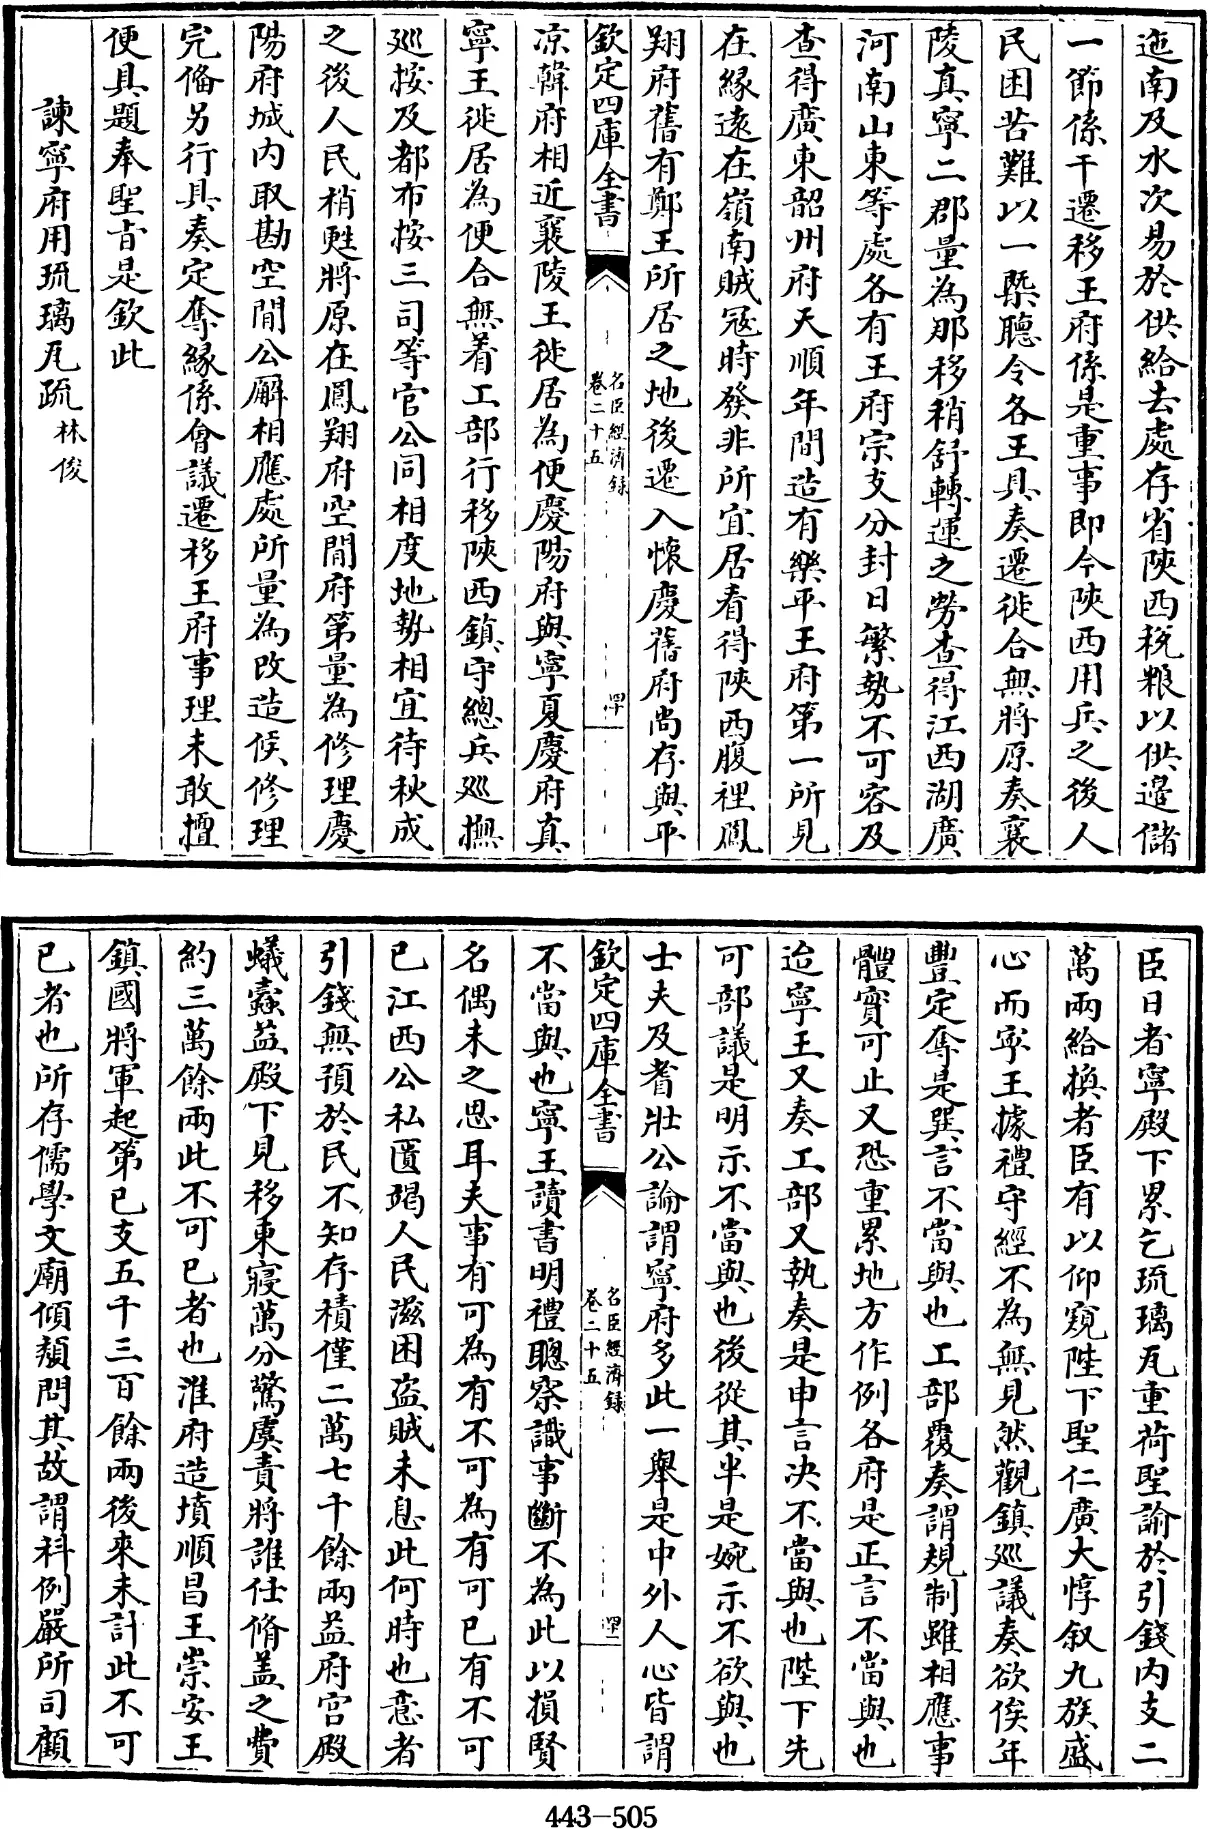 迤南及水次易於供給去處存省陜西税粮以供邉儲
一節係干遷移王府係是重事即今陜西用兵之後人
民困苦難以一槩聽令各王具奏遷徙合無將原奏襄
陵真寧二郡量為那移稍舒轉運之勞查得江西湖廣
河南山東等處各有王府宗支分封日繁勢不可容及
查得廣東韶州府天順年間造有樂平王府第一所見
在緣逺在嶺南賊冦時發非所宜居看得陜西腹裡鳳
翔府舊有鄭王所居之地後遷入懐慶舊府尚存與平
欽定四庫全書
名臣經濟録
卷二十五
四十
凉韓府相近襄陵王徙居為便慶陽府與寧夏慶府真
寧王徙居為便合無着工部行移陜西鎮守總兵廵撫
廵按及都布按三司等官公同相度地勢相宜待秋成
之後人民稍甦將原在鳳翔府空閒府第量為修理慶
陽府城内取勘空閒公廨相應處所量為改造候修理
完俻另行具奏定奪縁係會議遷移王府事理未敢擅
便具題奉聖旨是欽此
諫寧府用琉璃瓦疏 林俊
臣日者寧殿下累乞琉璃瓦重荷聖諭於引錢内支二
萬兩給換者臣有以仰窺陛下聖仁廣大惇叙九族盛
心而寧王據禮守經不為無見然觀鎮廵議奏欲俟年
豐定奪是巽言不當與也工部覆奏謂規制雖相應事
體實可止又恐重累地方作例各府是正言不當與也
迨寧王又奏工部又執奏是申言决不當與也陛下先
可部議是明示不當與也後從其半是婉示不欲與也
士夫及耆壯公論謂寧府多此一舉是中外人心皆謂
欽定四庫全書
名臣經濟録
卷二十五
四十一
不當與也寧王讀書明禮聰察識事斷不為此以損賢
名偶未之思耳夫事有可為有不可為有可已有不可
已江西公私匱竭人民滋困盗賊未息此何時也意者
引錢無預於民不知存積僅二萬七千餘兩益府宫殿
蟻蠧益殿下見移東寢萬分驚虞責將誰任脩盖之費
約三萬餘兩此不可已者也淮府造墳順昌王崇安王
鎮國將軍起第已支五千三百餘兩後來未計此不可
已者也所存儒學文廟傾頽問其故謂科例嚴所司顧
443-505